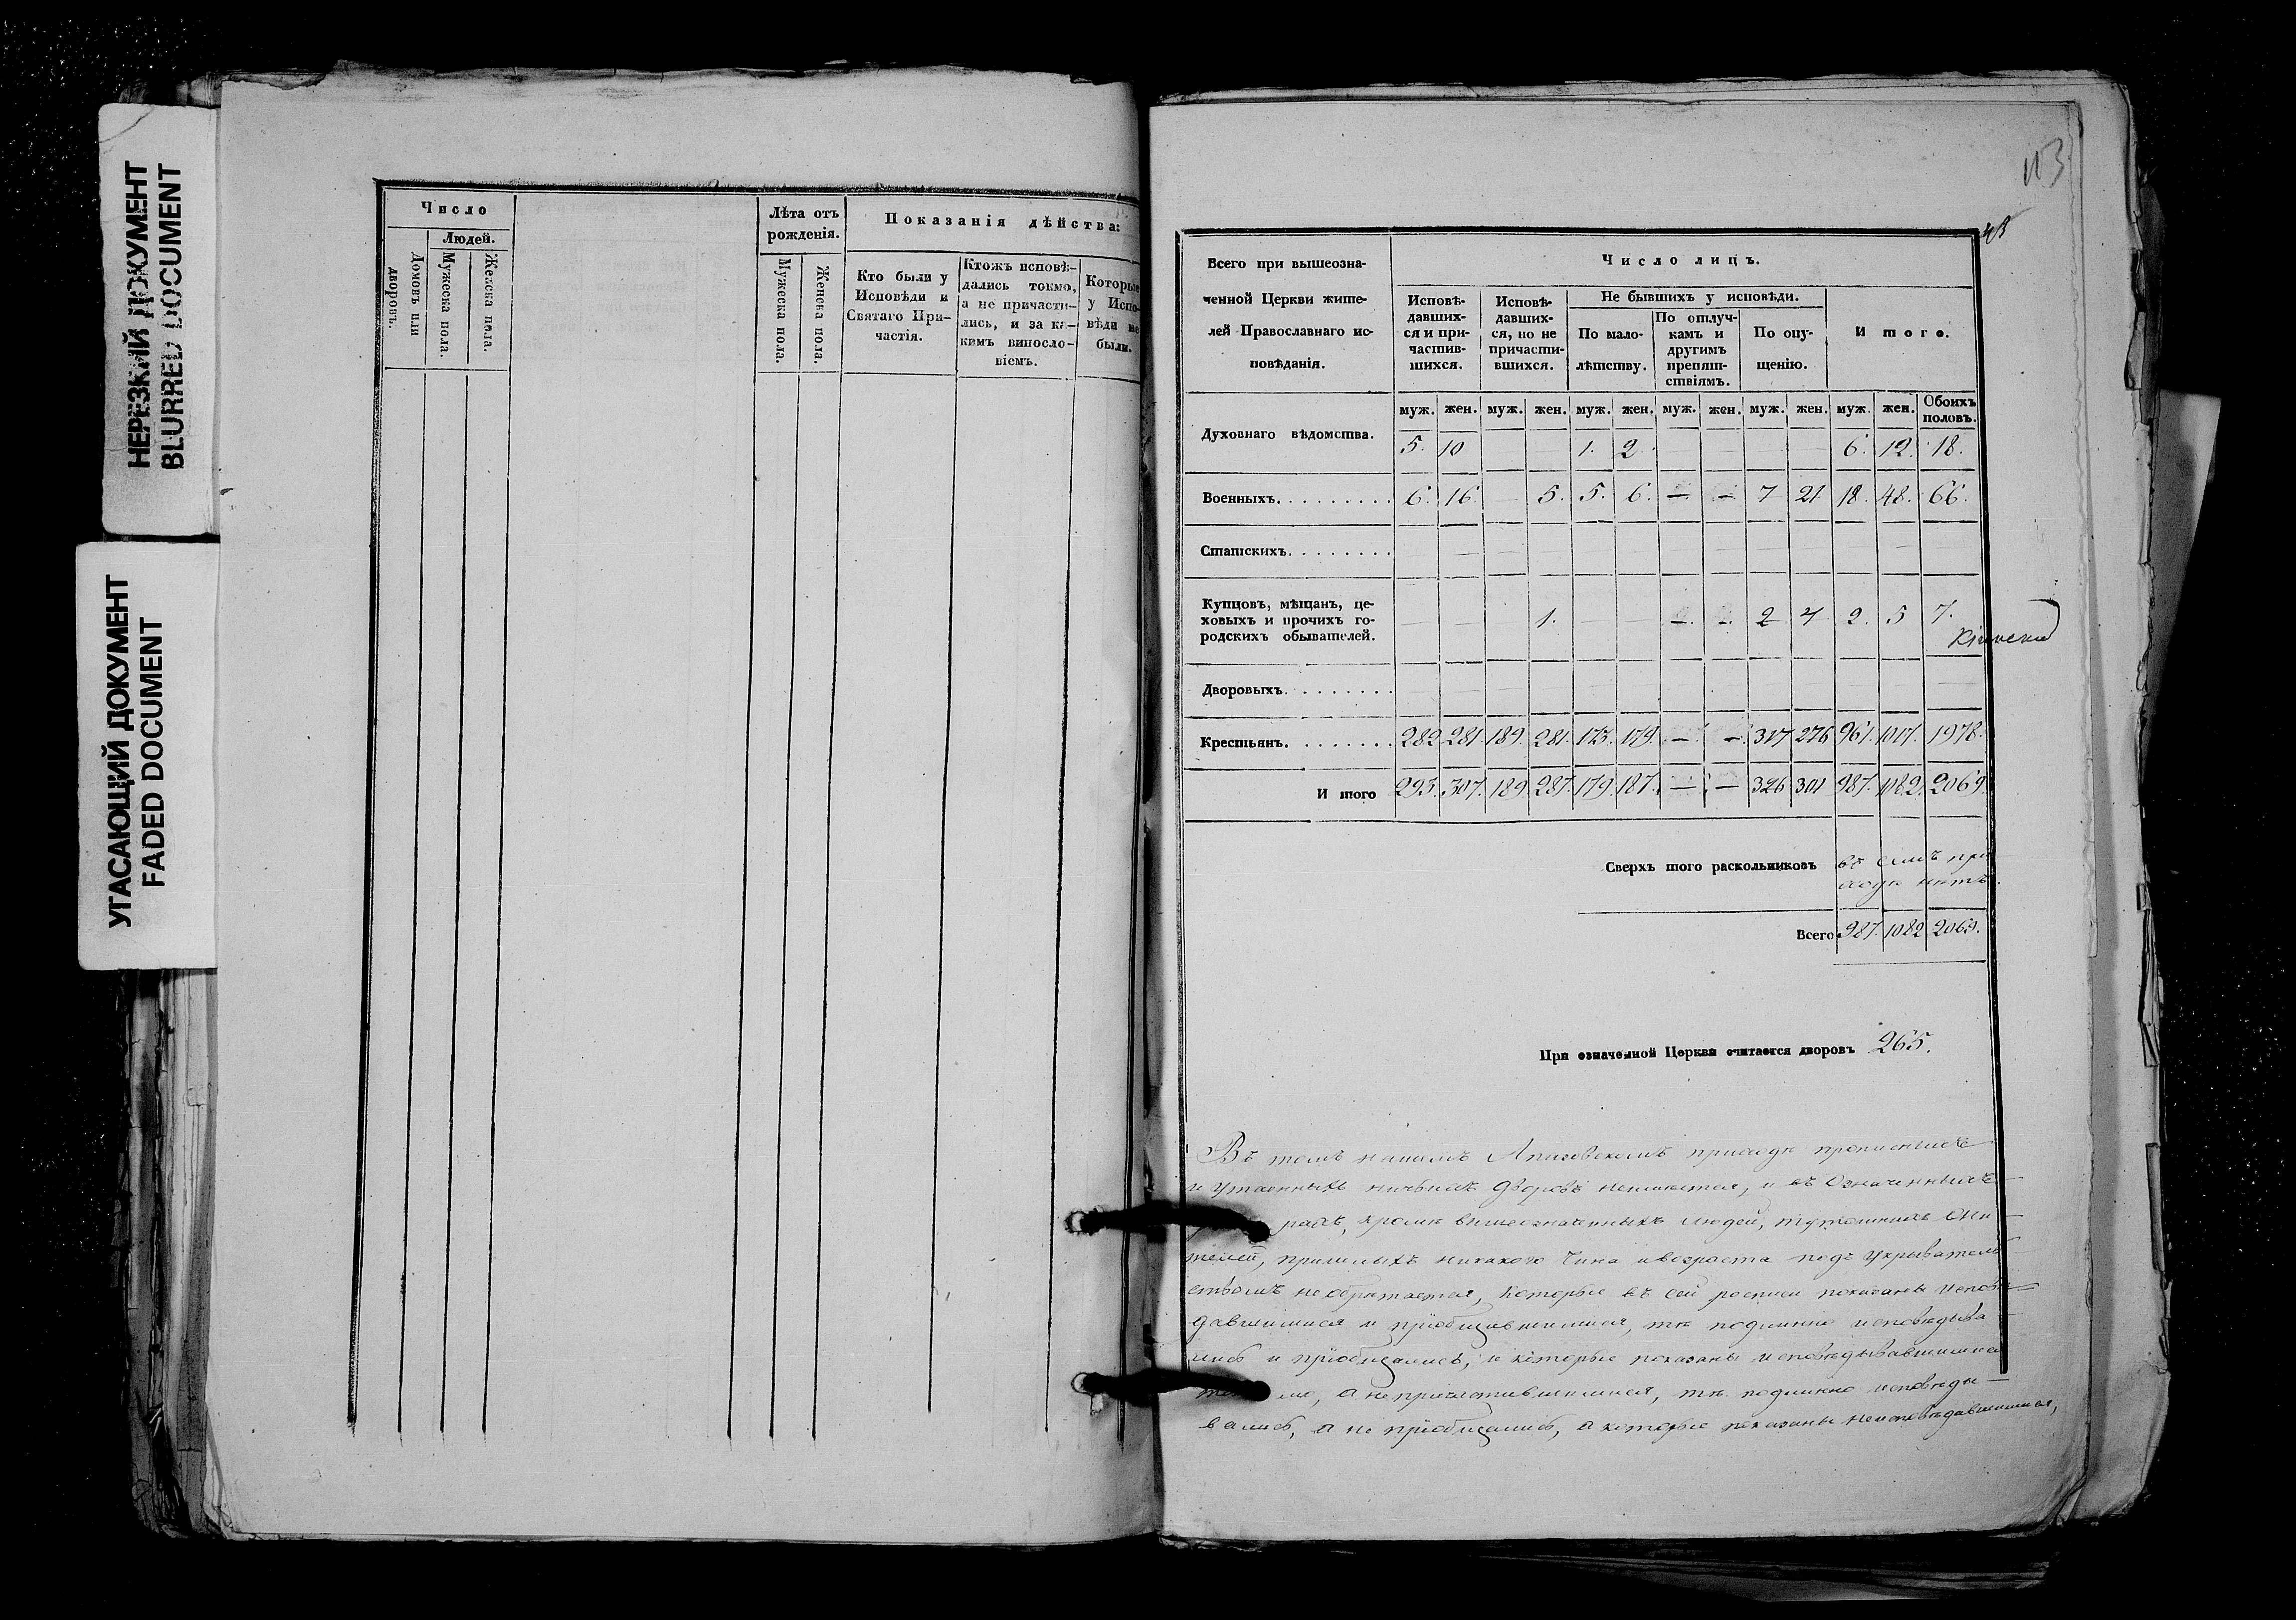 НЕРЕЗКИЙ ДОКУМЕНТ
BLURRED DOCUMENT
УГАСАЮЩИЙ ДОКУМЕНТ
FADED DOCUMENT
Число
Людей.
Домовъ или дворовъ.
Мужеска пола.
Женска пола.
Лѣта отъ
рожденія.
Мужеска пола.
Женска пола.
Показанія дѣйства:
Кто были у
Исповѣди и
Святаго При-
частія.
Ктожъ исповѣ-
дались токмо,
а не причасти-
лись, и за ка-
кимъ винусло-
віемъ.
Которые
у Испо-
вѣди не
были.
113
Всего при вышеозна-
ченной Церкви жите-
лей Православнаго ис-
повѣданія.
Число лицъ.
Исповѣ-
давших-
ся и при-
частив-
шихся.
Исповѣ-
давших-
ся, но не
причасти-
вшихся.
Не бывшихъ у исповѣди.
По мало-
лѣтству.
По отлуч-
камъ и
другимъ
препят-
ствіямъ.
По опу-
щенію.
Итого.
муж. жен. муж. жен. муж. жен. муж. жен. муж. жен. муж. жен. Обоихъ половъ.
Духовнаго вѣдомства. 5. 10 — — 1. 2. — — — — 6. 12. 18.
Военныхъ. . . . . . . . . 6. 16. — 5. 5. 6. — — 7 21 18. 48. 66.
Статскихъ. . . . . . . .
Купцовъ, мѣщанъ, це-
ховыхъ и прочихъ го-
родскихъ обывателей. — — — 1. — — — — 2 4 2. 5 7.
Дворовыхъ. . . . . . . .
Крестьянъ. . . . . . . . 282 281. 189. 281. 173. 179. — — 317 276 961. 1017. 1978.
Итого 293. 307. 189. 287. 179. 187. — — 326 301 987. 1082. 2069
Сверхъ того раскольниковъ въ семъ при
ходѣ нѣтъ.
Всего 987. 1082 2069.
При означенной Церкви считается дворовъ 265.
Въ томъ нашемъ приходѣ прописныхъ
и утаенныхъ ничьихъ дворовъ неимѣется, и въ означенныхъ
кромѣ вышеозначенныхъ людей, тутошнихъ жи-
телей, пришлыхъ никакого чина и возраста подъ укрыватель
ствомъ необрѣтается, которые въ сей росписи показаны исповѣ-
давшимися и пріобщавшимися, тѣ подлинно исповѣдыва
лись и пріобщались, и которые показаны исповѣдывавшимися
а непричастившимися, тѣ подлинно исповѣды-
вались, а не пріобщались, а которые показаны неисповѣдавшимися,